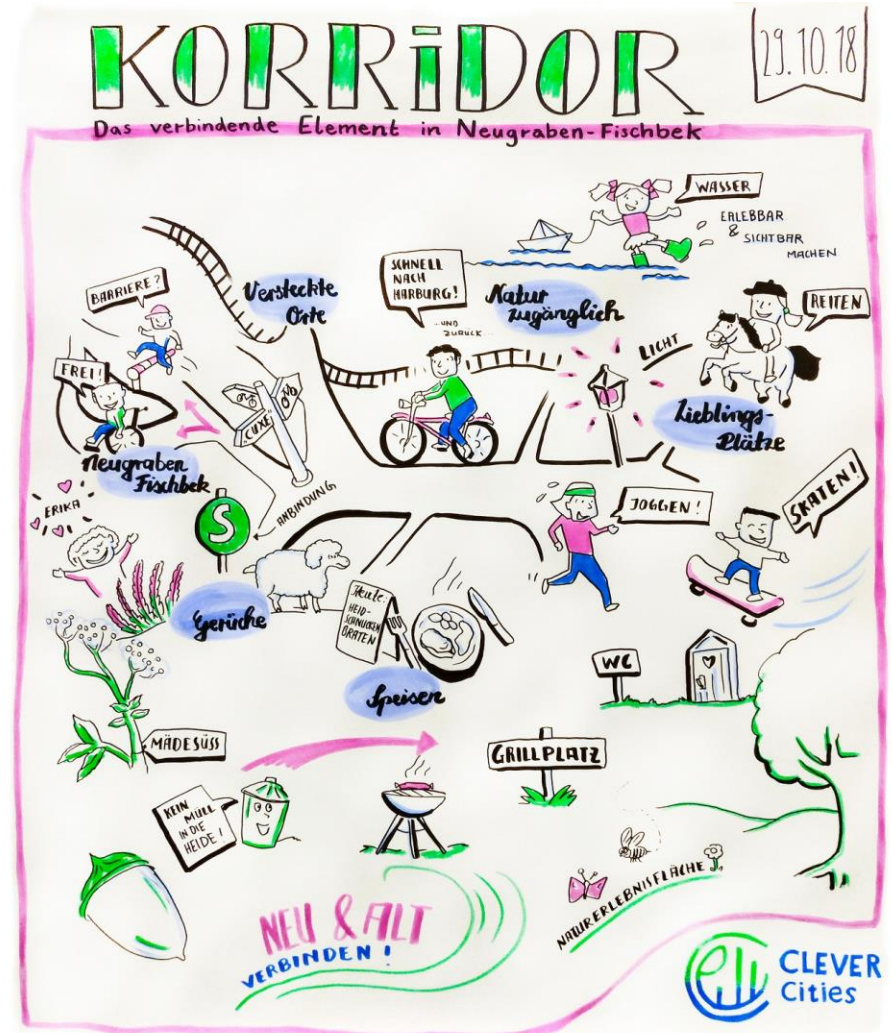 KORRiDOR
29.10.18
Das verbindende Element in Neugraben-Fischbek
WASSER
ERLEBBAR
& SICHTBAR
MACHEN
BARRIERE?
Versteckte
Orte
SCHNELL
NACH
HARBURG!
...UND
ZURÜCK...
Natur
zugänglich
REITEN
FREI!
CUXE"
LICHT
Lieblings-
Plätze
Neugraben
Fischbek
ERIKA
S
ANBINDUNG
JOGGEN!
SKATEN!
Gerüche
Heute:
HEID-
SCHNUCKEN
BRATEN
Speisen
WC
MÄDESÜSS
GRILLPLATZ
KEIN
MÜLL
IN DIE
HEIDE!
NATURERLEBNISFLÄCHE
NEU & ALT
VERBINDEN!
CLEVER
Cities